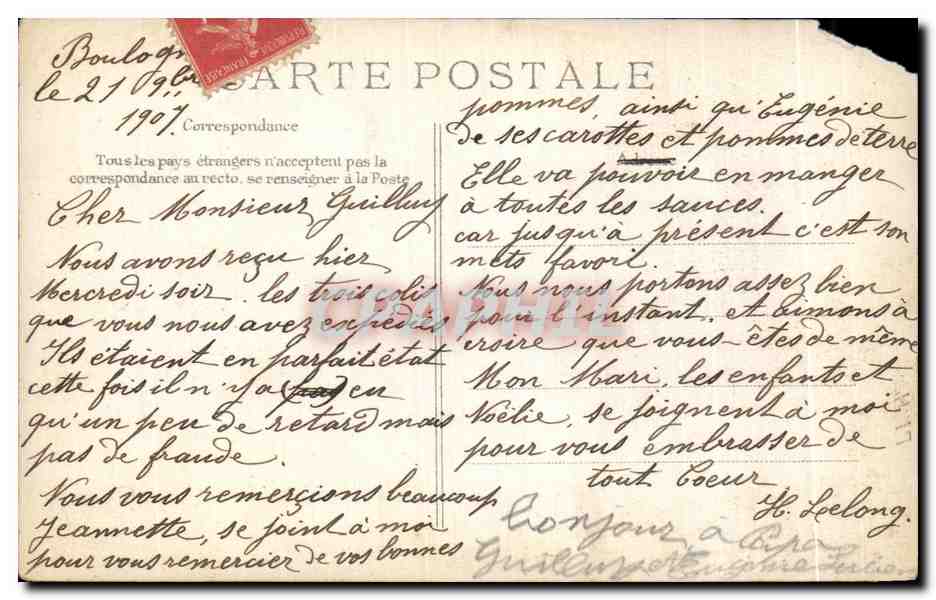 Boulogne
le 21 9bre
1907.
CARTE POSTALE
Correspondance
Tous les pays étrangers n'acceptent pas la
correspondance au recto, se renseigner à la Poste
Cher Monsieur Guilluy
Nous avons reçu hier
Mercredi soir les trois colis
que vous nous avez expédiés
Ils étaient en parfait état
cette fois il n'y a pas eu
qu'un peu de retard mais
pas de fraude.
Nous vous remerçions beaucoup
Jeannette, se joint à moi
pour vous remercier de vos bonnes
pommes, ainsi qu'Eugénie
de ses carottes et pommes de terre
Adresse
Elle va pouvoir en manger
à toutes les sauces.
car jusqu'à présent c'est son
mets favori.
Nous nous portons assez bien
pour l'instant, et aimons à
croire que vous-êtes de même
Mon Mari, les enfants et
Noëlie, se joignent à moi
pour vous embrasser de
tout Coeur
H. Lelong.
bonjour à Papa
Guilluy et Eugénie
CPAPHIL